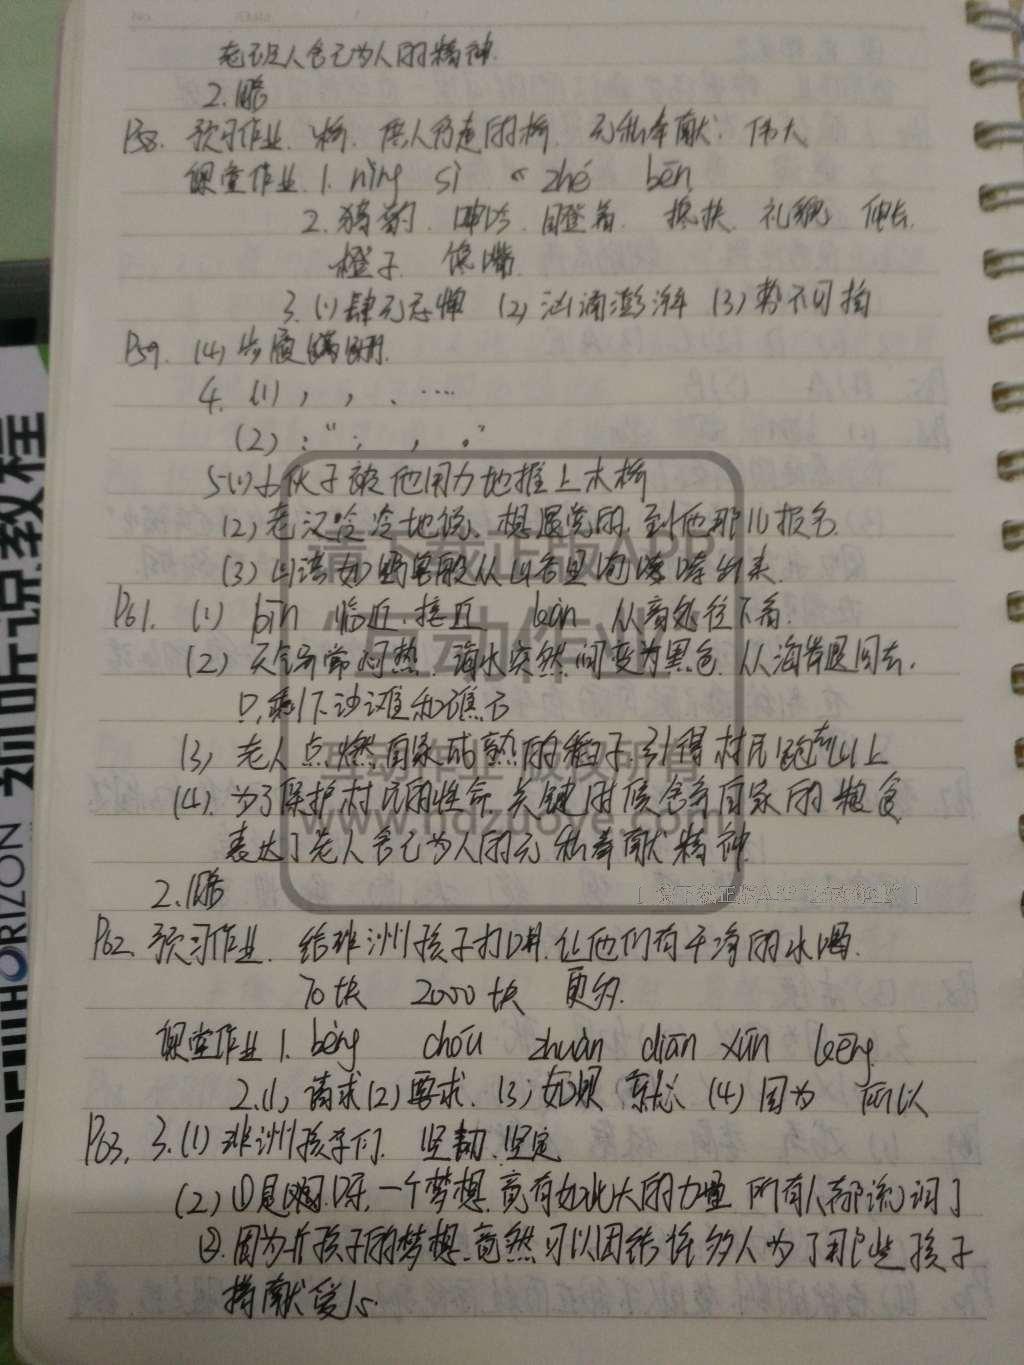 老汉舍己为人的精神.
2. 略
P58. 预习作业. 桥. 供人行走的桥. 无私奉献. 伟大
课堂作业 1. nìng sì zhé bēn
2. 猗豹. 呻吟. 目瞪着. 搀扶. 礼貌 伸长.
橙子. 馋嘴.
3. (1) 肆无忌惮 (2) 汹涌澎湃 (3) 势不可挡
P59. (4) 步履蹒跚.
4. (1) , , 、 ……
(2) :" ; , 。"
5(1) 小伙子被他用力地推上木桥
(2) 老汉冷冷地说, 想退党的, 到他那儿报名.
(3) 山洪如野兽般从山谷里咆哮奔出来.
P61. (1) bīn 临近. 接近 kàn 从高处往下看.
(2) 天气异常闷热 海水突然间变为黑色. 从海岸退回去.
只剩下沙滩和礁石
(3) 老人点燃自家成熟的稻子引得村民跑到山上
(4) 为了保护村民的性命, 关键时候舍弃自家的粮食
表达了老人舍己为人的无私奉献精神
2. 略
P62. 预习作业. 给非洲孩子打口井. 让他们有干净的水喝.
70块 2000块 更多.
课堂作业 1. bèng chóu zhuàn diàn xùn kēng
2.(1) 请求 (2) 要求. (3) 如果 就 (4) 因为 所以
P63. 3. (1) 非洲孩子们 坚韧. 坚定
(2) ① 是啊! 一个梦想, 竟有如此大的力量 所有人都流泪了
②. 因为一个孩子的梦想. 竟然可以团结许多人为了那些孩子
捐献爱心.
请下载正版APP
互动作业
互动作业 版权所有
www.hdzuoye.com
[ 请下载正版APP 互动作业 ]
视听说教程
HORIZON